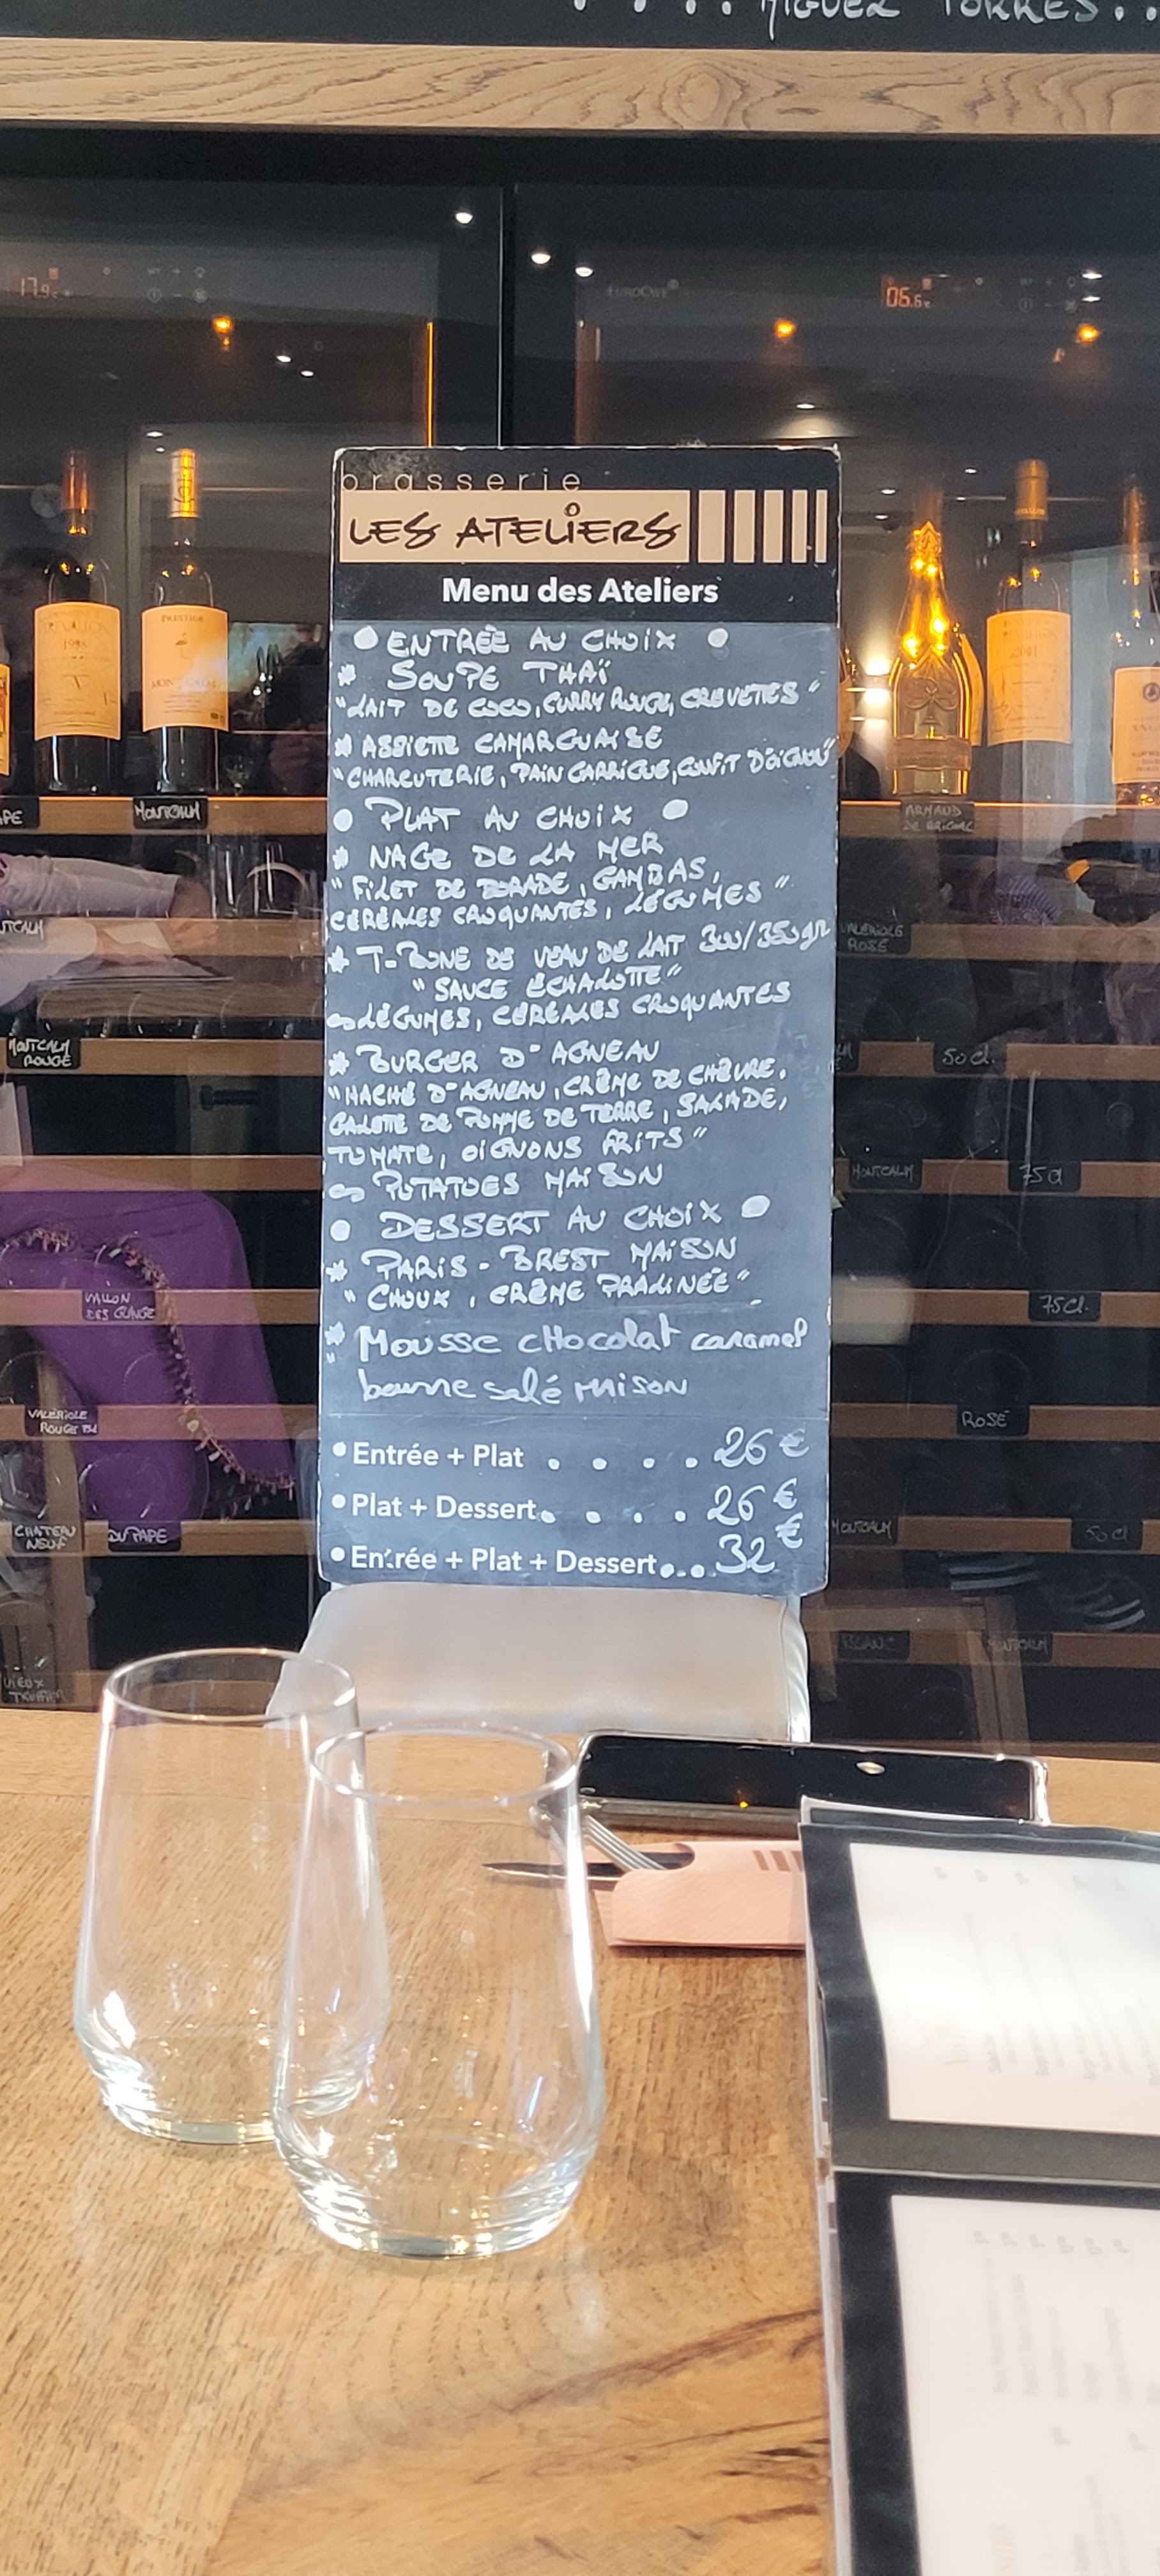 MIGUEL TORRES..
17.9c
EUROCAVE
06.6c
brasserie
LES ATELIERS
Menu des Ateliers
ENTRÉE AU CHOIX
* SOUPE THAÏ
"LAIT DE COCO, CURRY ROUGE, CREVETTES"
* ASSIETTE CAMARGUAISE
"CHARCUTERIE, PAIN GARRIGUE, CONFIT D'OIGNON"
PLAT AU CHOIX
* NAGE DE LA MER
"FILET DE DORADE, GAMBAS,
CÉRÉALES CROQUANTES, LÉGUMES"
* T-BONE DE VEAU DE LAIT 300/350gr
"SAUCE ÉCHALOTTE"
LÉGUMES, CÉRÉALES CROQUANTES
* BURGER D'AGNEAU
"HACHÉ D'AGNEAU, CRÈME DE CHÈVRE,
GALETTE DE POMME DE TERRE, SALADE,
TOMATE, OIGNONS FRITS"
POTATOES MAISON
DESSERT AU CHOIX
* PARIS-BREST MAISON
"CHOUX, CRÈME PRALINÉE"
* Mousse chocolat caramel
beurre salé maison
Entrée + Plat . . . . 26 €
Plat + Dessert. . . . 26 €
Entrée + Plat + Dessert... 32 €
1998
PRESTIGE
MONTCALM
PAPE
MONTCALM
MONTCALM
ROUGE
VALLON
DES GLANGE
VALÉRIOLE
ROUGE
CHATEAU
NEUF
DU PAPE
VIEUX
TRUFFIER
2001
ARMAND
DE BRIGNAC
VALÉRIOLE
ROSÉ
50 Cl.
MONTCALM
75 Cl
75 Cl.
ROSÉ
MONTCALM
50 Cl
BLANC
MONTCALM